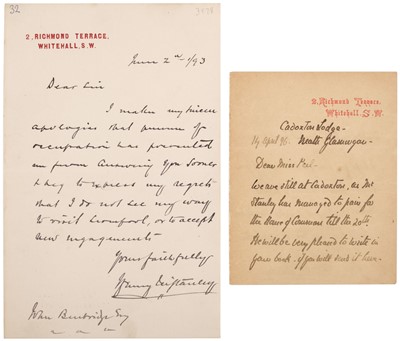 32
2, RICHMOND TERRACE,
WHITEHALL, S.W.
June 2nd /93
Dear Sir
I make my sincere
apologies that pressure of
occupation has prevented
me from answering you sooner
I beg to express my regrets
that I do not see my way
to visit Liverpool, or to accept
new engagements
Yours faithfully
Henry M Stanley
John Bembridge Esq
2, Richmond Terrace,
Whitehall, S.W.
Cadoxton Lodge -
Neath Glamorgan
19 April 95.
Dear Miss
We are still at Cadoxton, as Mr
Stanley has managed to pair for
the House of Commons till the 20th.
He will be very pleased to write in
your book - if you will send it here -